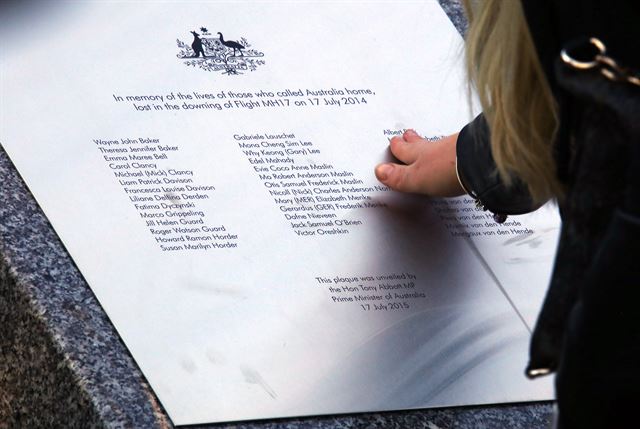 In memory of the lives of those who called Australia home,
lost in the downing of Flight MH17 on 17 July 2014
Wayne John Baker
Theresa Jennifer Baker
Emma Maree Bell
Carol Clancy
Michael (Mick) Clancy
Liam Patrick Davison
Francesca Louise Davison
Liliane Delfina Derden
Fatima Dyczynski
Marco Grippeling
Jill Helen Guard
Roger Watson Guard
Howard Ramon Horder
Susan Marilyn Horder
Gabriele Lauschet
Mona Cheng Sim Lee
Why Keong (Gary) Lee
Edel Mahady
Evie Coco Anne Maslin
Mo Robert Anderson Maslin
Otis Samuel Frederick Maslin
Nicoll (Nick) Charles Anderson Norris
Mary (MER) Elizabeth Menke
Gerardus (GER) Frederik Menke
Dafne Nieveen
Jack Samuel O'Brien
Victor Oreshkin
Albert
van den Hende
van den Hende
Margaux van den Hende
This plaque was unveiled by
the Hon Tony Abbott MP
Prime Minister of Australia
17 July 2015